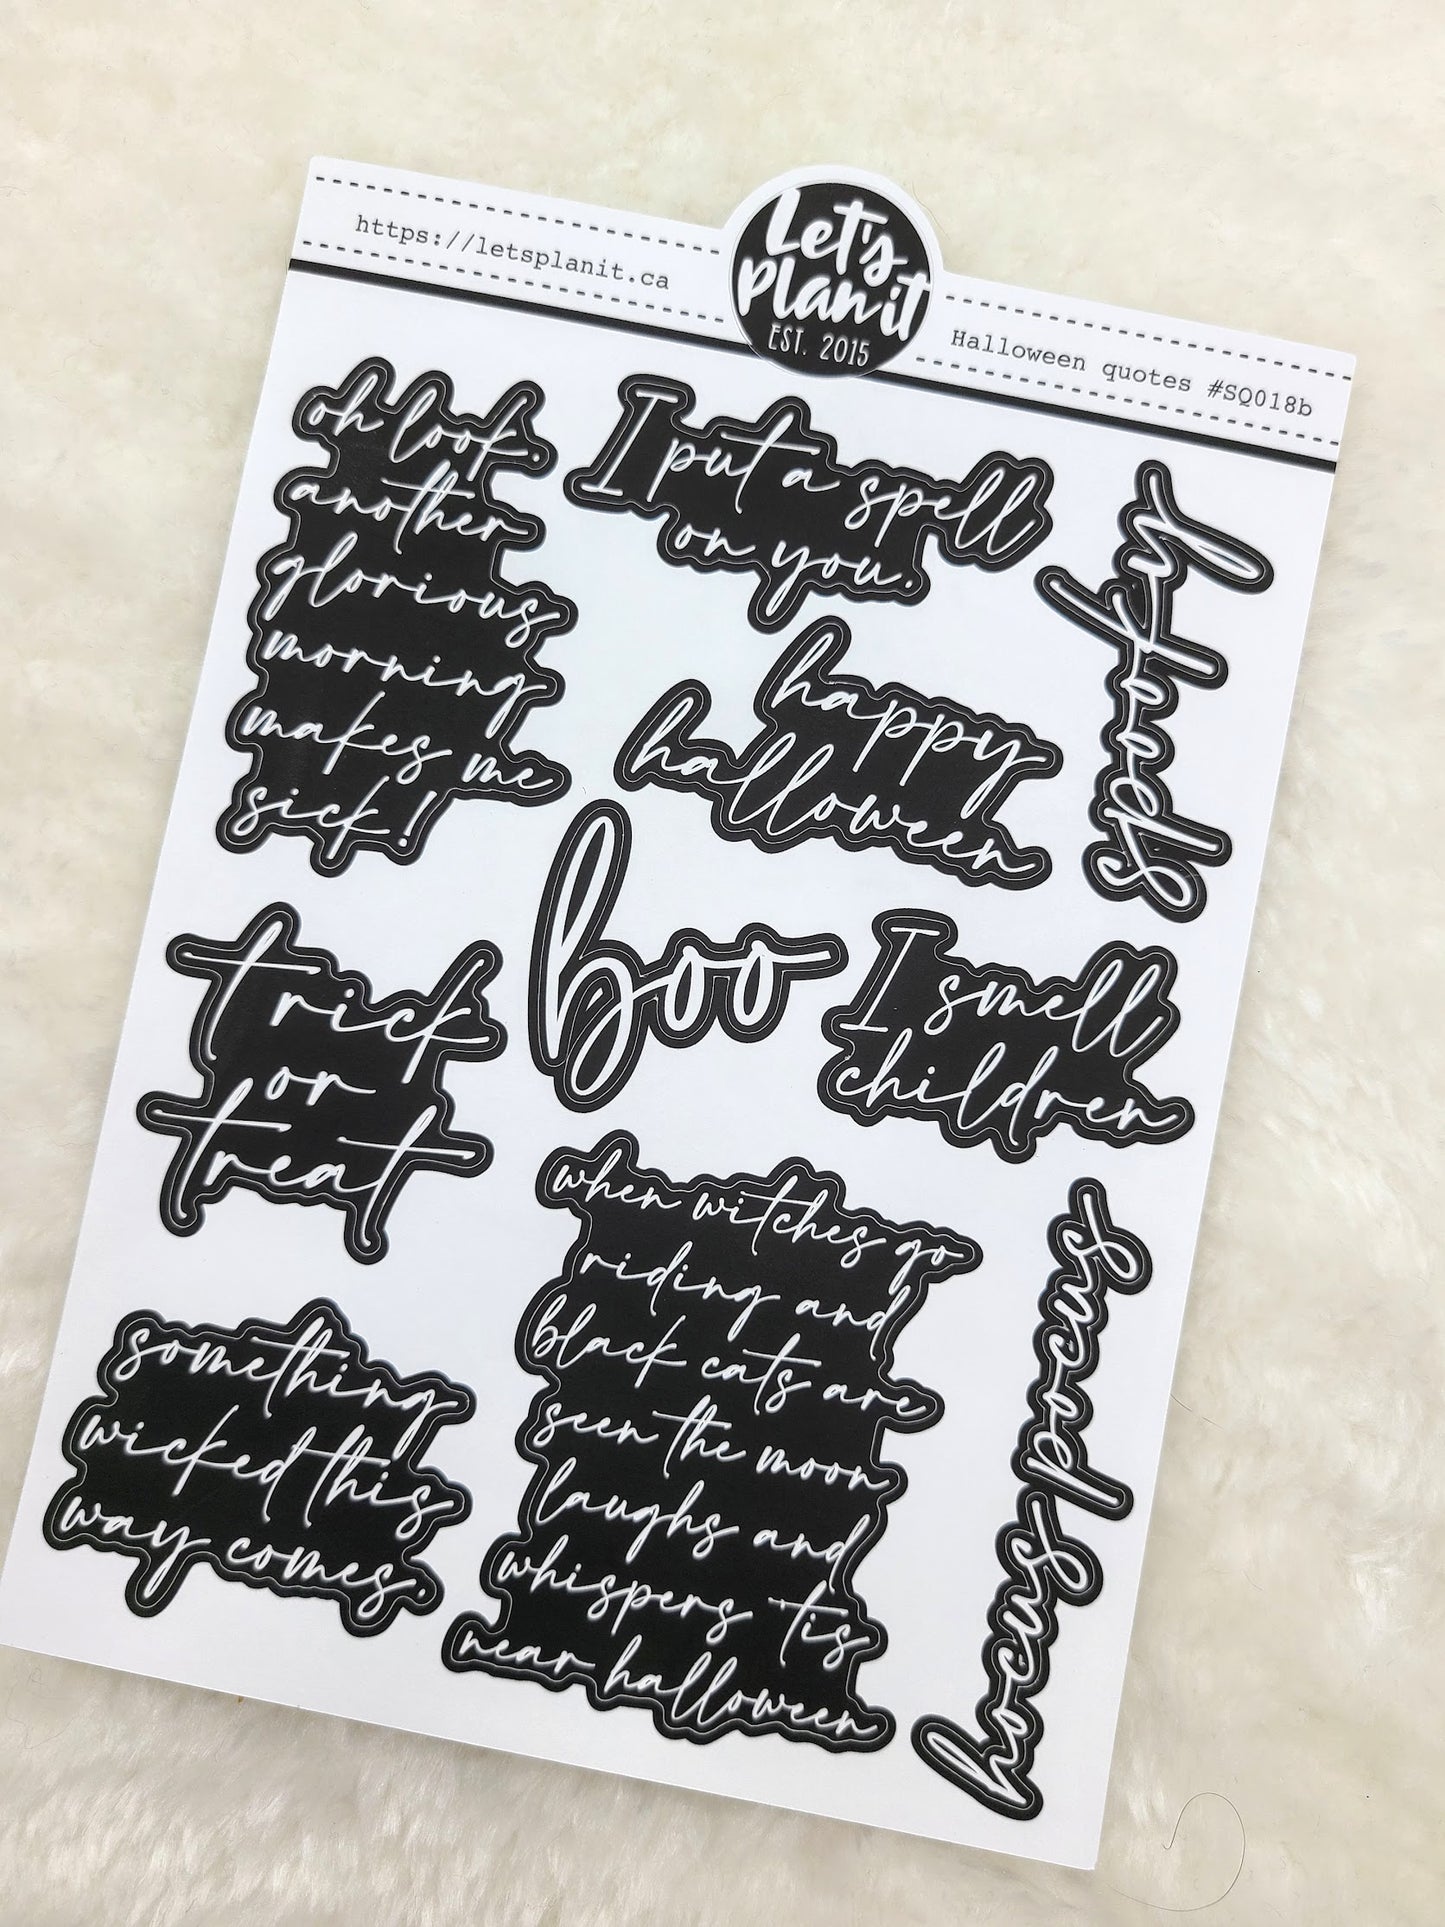 https://letsplanit.ca
Let's
Plan it
EST. 2015
Halloween quotes #SQ018b
oh look,
another
glorious
morning
makes me
sick!
I put a spell
on you.
hey foolfs
happy
halloween
boo
trick
or
treat
I smell
children
something
wicked this
way comes.
when witches go
riding and
black cats are
seen the moon
laughs and
whispers 'tis
near halloween
hocus pocus